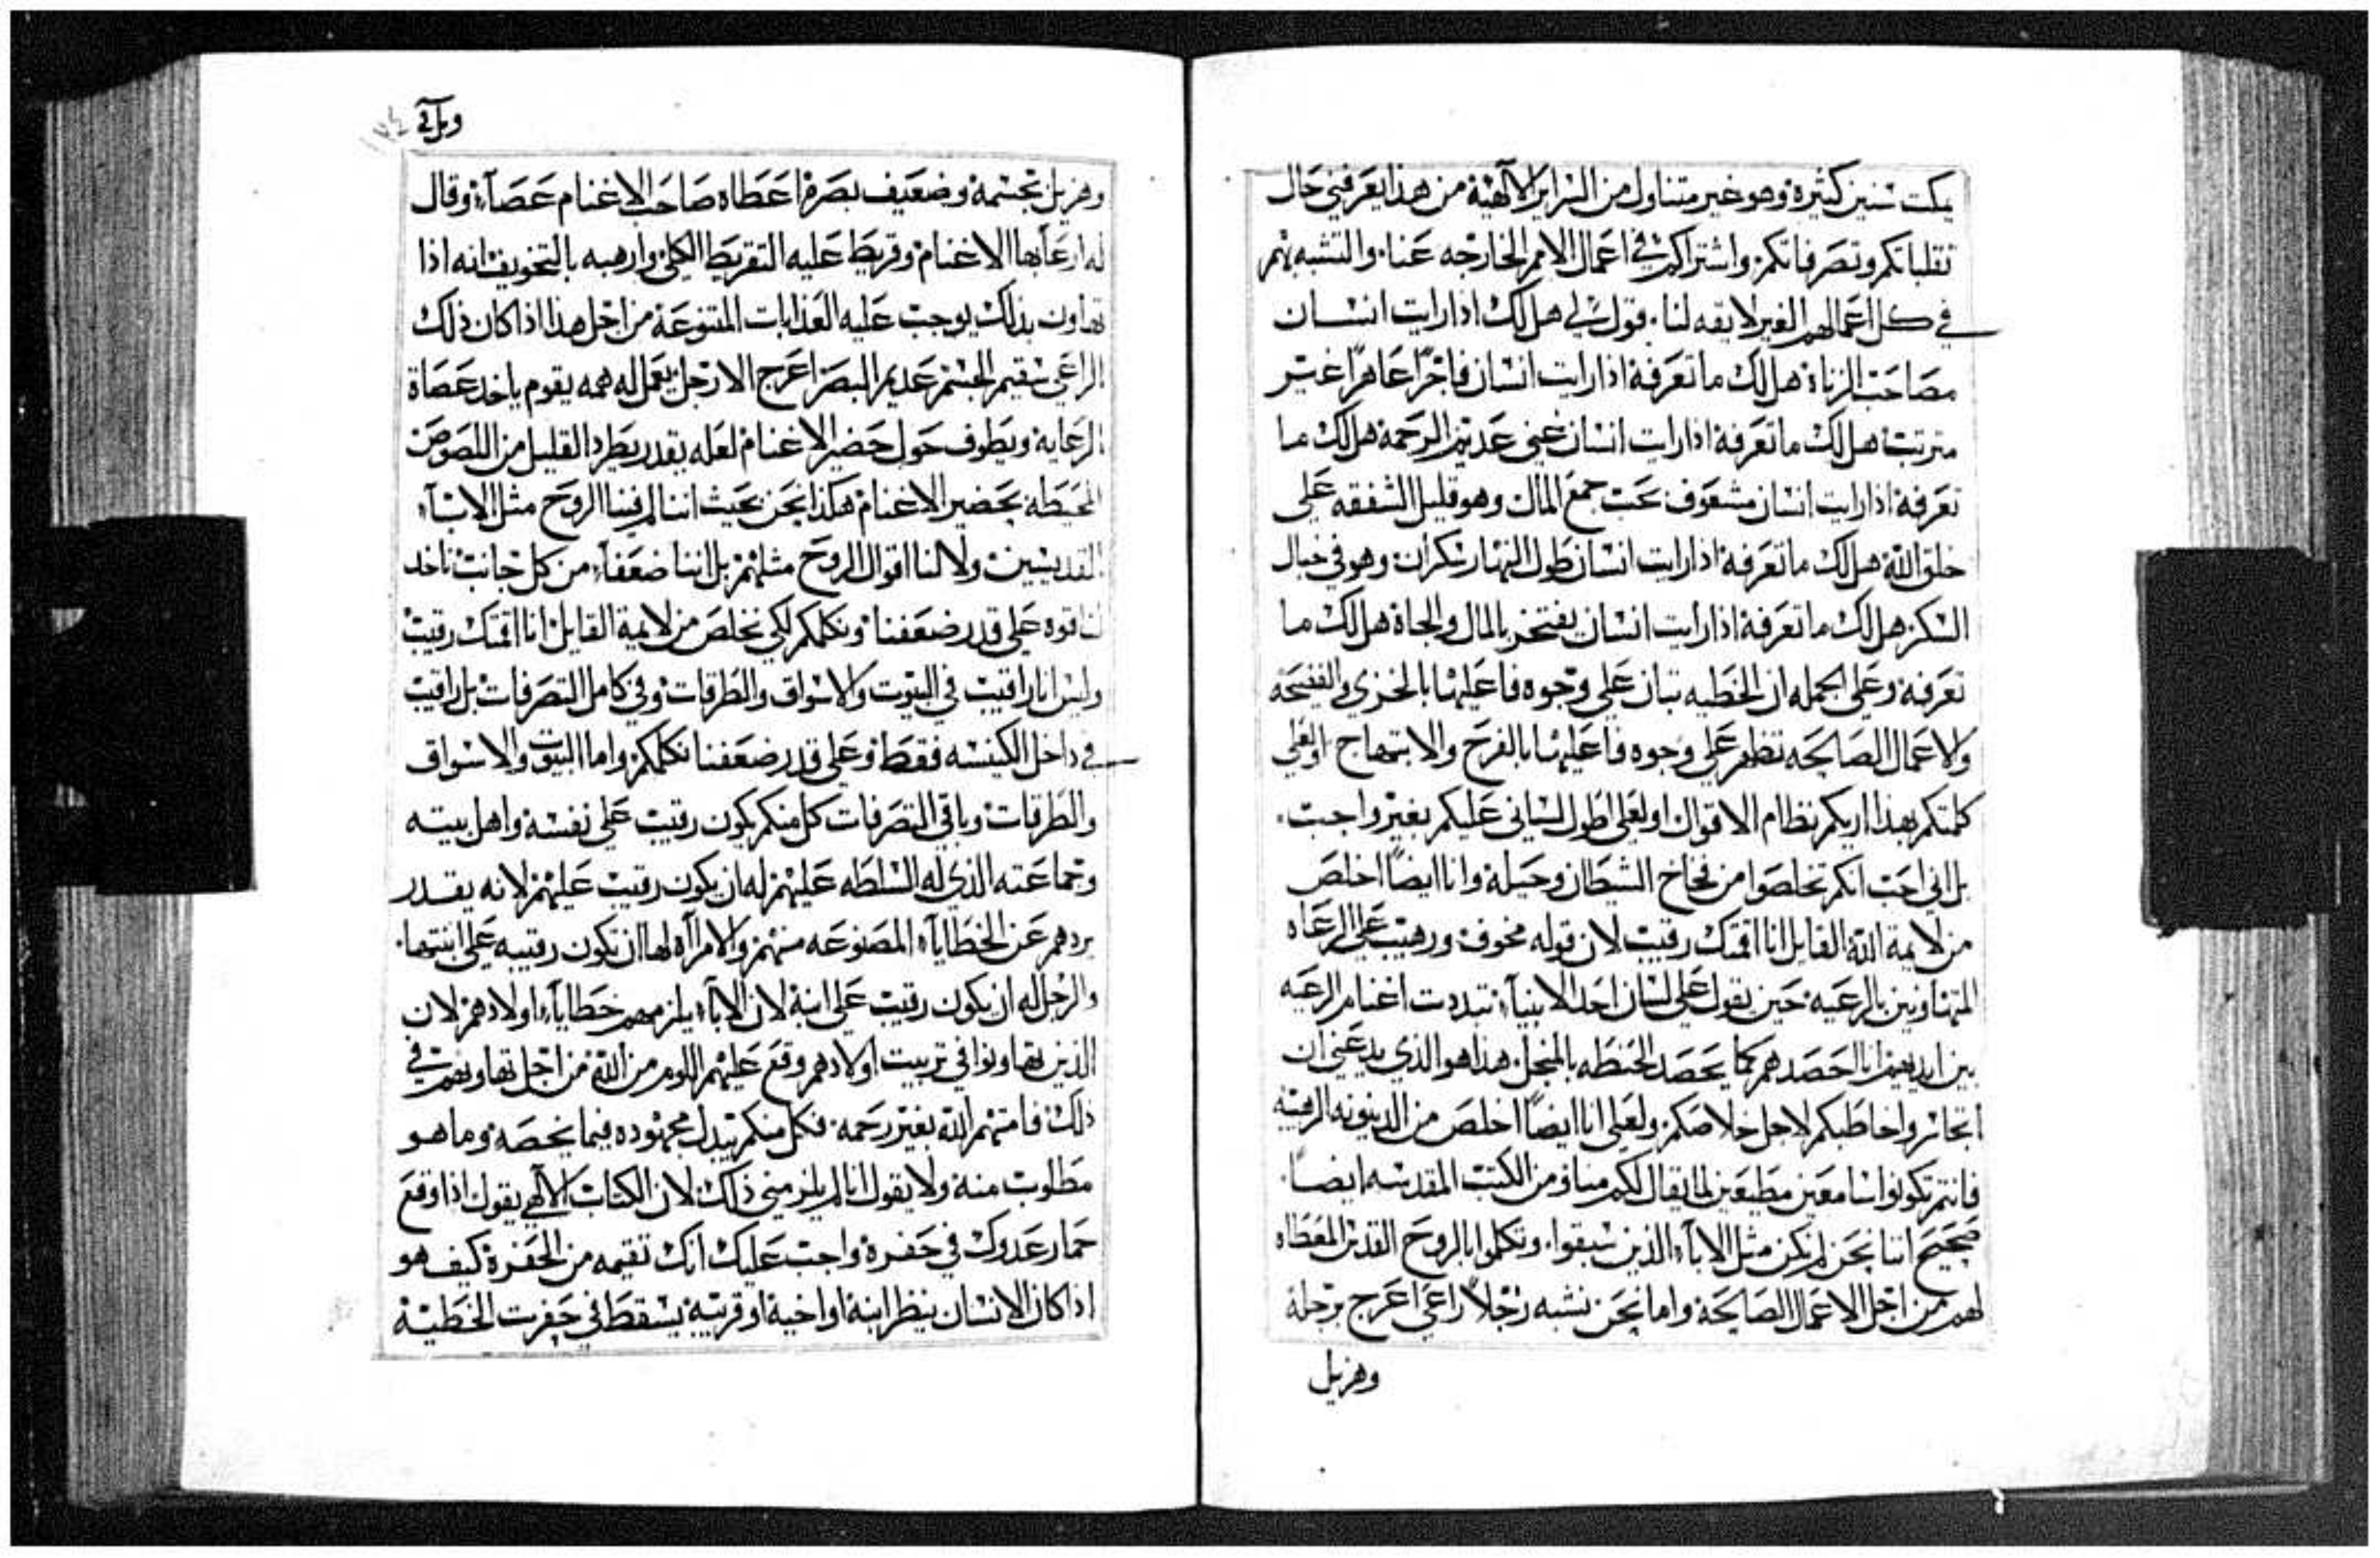 يمكت سنين كثيرة وهو غير متناول من السراير الالاهية من هذا يعرفني حال
تقلباتكم وتصرفاتكم واشتراككم في اعمال الامم الخارجه عنا والتشبه بهم
في كل اعمالهم الغير لايقه لنا قول لي هل لك اذا رايت انسان
مصاحب الزناة هل لك ما تعرفة اذا رايت انسان فاجرًا عاهرًا غير
مترتب هل لك ما تعرفة اذا رايت انسان غني عديم الرحمة هل لك ما
تعرفة اذا رايت انسان مشعوف بحب جمع المال وهو قليل الشفقه على
خلق الله هل لك ما تعرفة اذا رايت انسان طول النهار سكران وهو في خيال
السكر هل لك ما تعرفة اذا رايت انسان يفتخر بالمال والجاة هل لك ما
تعرفة وعلى الجمله ان الخطيه تبان على وجوه فاعليها بالخزي والفضيحة
والاعمال الصالحه تظهر على وجوه فاعليها بالفرح والابتهاج اولعلي
كلمتكم بهذا اريكم نظام الاقوال اولعلي اطول لساني عليكم بغير واجب
بل اني احب انكم تخلصوا من فخاخ الشيطان وحيلة وانا ايضًا اخلص
من لايمة الله القايل انا اقمتك رقيب لان قوله مخوف ورهيب على الرعاه
المتهاونين بالرعيه حين يقول على لسان احد الانبياء تبددت اغنام الرعيه
بين ايديهم انا احصدهم كما يحصد الحنطه بالمنجل هذا هو الذي يدعني ان
اتجاسر واخاطبكم لاجل خلاصكم ولعلي انا ايضًا اخلص من الدينونه الرهيبه
فانتم تكونوا سامعين مطيعين لما يقال لكم منا ومن الكتب المقدسه ايضًا
صحيح اننا نحن لم نكن مثل الاباء الذين سبقوا وتكلموا بالروح القدس المعطاه
لهم من اجل الاعمال الصالحة واما نحن نشبه رجلاً راعي اعرج برجلة
وهزيل
وهزيل بجسمة وضعيف بصرة اعطاه صاحب الاغنام عصاة وقال
له ارعا بها الاغنام وقريط عليه التقريط الكلي وارهبه بالتخويف انه اذا
تهاون بذلك يوجب عليه العذابات المتنوعة من اجل هذا اذا كان ذلك
الراعي سقيم الجسم عديم البصر اعرج الارجل يعمل له همه يقوم ياخد عصاة
الرعاية ويطوف حول حضير الاغنام لعله يقدر يطرد القليل من اللصوص
المحيطه بحضير الاغنام هكذا نحن بحيث اننا لم فينا الروح مثل الاباء
القديسين ولا لنا اقوال الروح مثلهم بل اننا ضعفاء من كل جانب ناخد
لنا قوه على قدر ضعفنا ونكلمكم لكي نخلص من لايمة القايل انا اقمتك رقيب
وليس انا راقيب في البيوت والاسواق والطرقات وفي كامل التصرفات بل راقيب
في داخل الكنيسه فقط وعلى قدر ضعفنا نكلمكم واما البيوت والاسواق
والطرقات وباقي التصرفات كل منكم يكون رقيب على نفسة واهل بيته
وجماعته الذي له السلطه عليهم له ان يكون رقيب عليهم لانه يقدر
يردهم عن الخطاياء المصنوعه منهم والامراه لها ان تكون رقيبه على ابنتها
والرجل له ان يكون رقيب على ابنة لان الاباء يلزمهم خطاياء اولادهم لان
الذين تهاونوا في تربيت اولادهم وقع عليهم اللوم من الله من اجل تهاونهم في
ذلك فامتهم الله بغير رحمه فكل منكم يبدل مجهوده فيما يخصة وما هو
مطلوب منة ولا يقول انا لم يلزمني ذلك لان الكتاب الالاهي يقول اذا وقع
حمار عدوك في حفرة واجب عليك انك تقيمه من الحفرة كيف هو
اذا كان الانسان ينظر ابنة او اخية او قريبة يسقط في حفرت الخطية